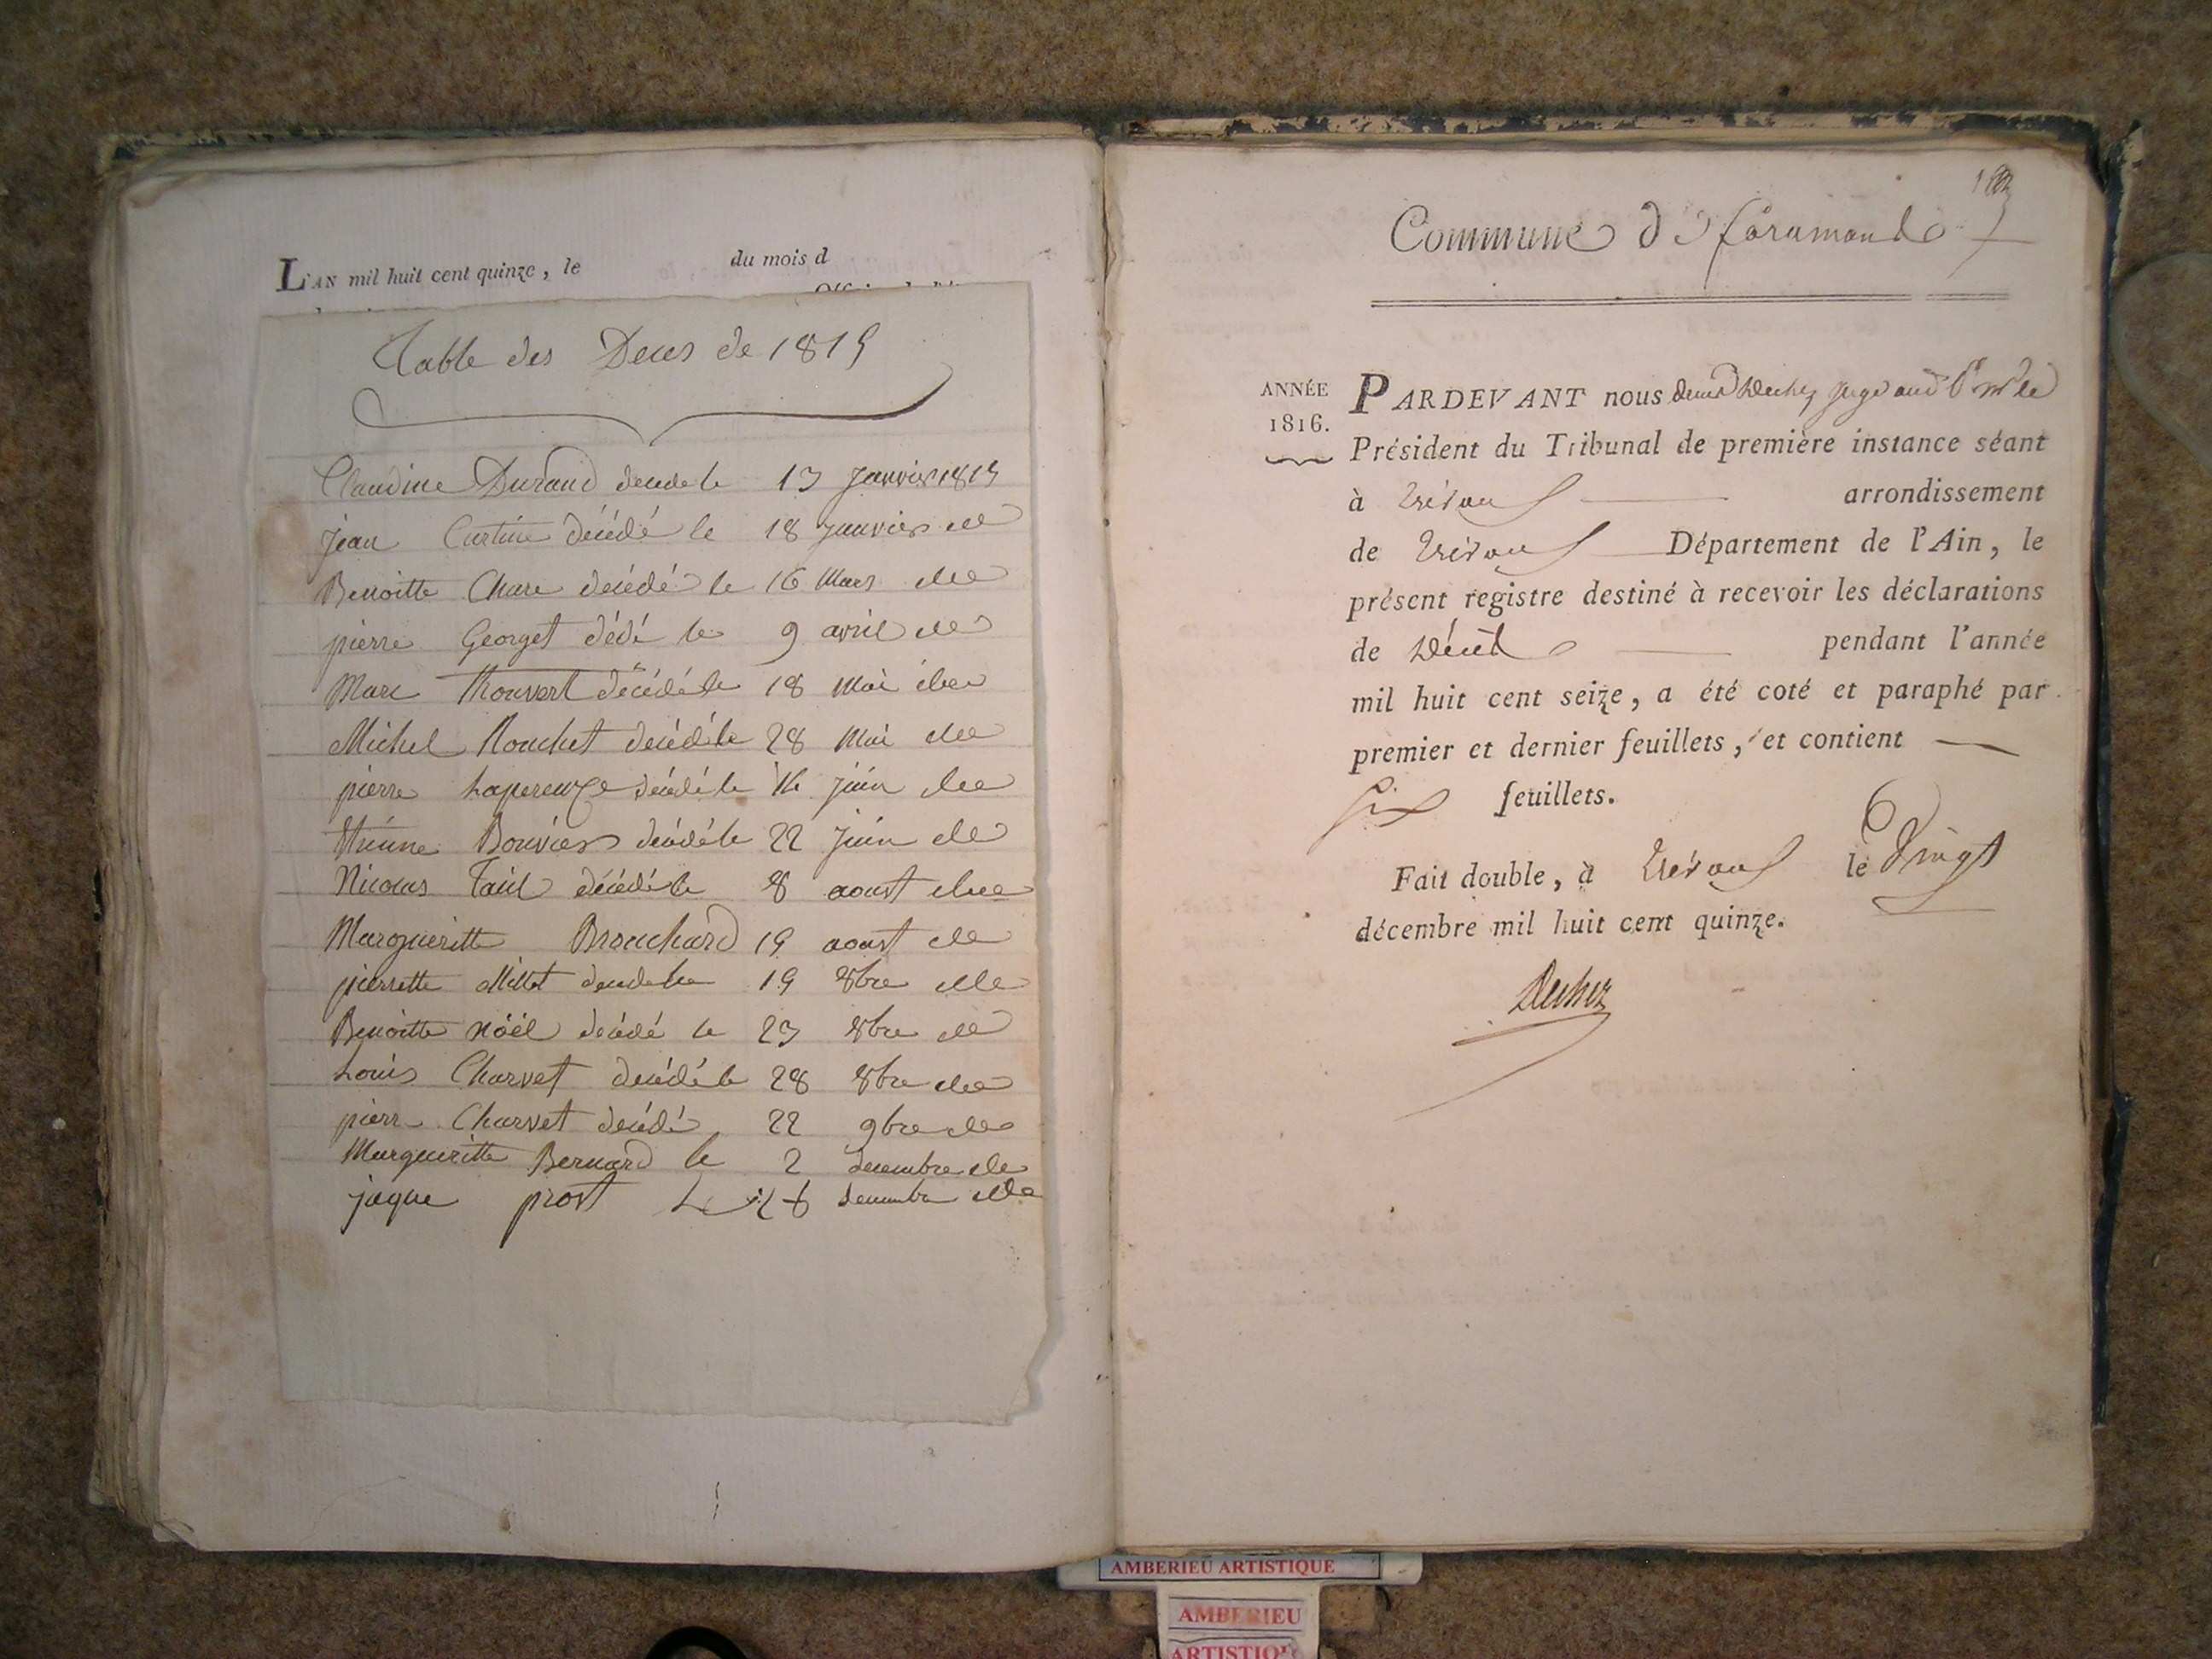 L'AN mil huit cent quinze, le du mois d
Table des Deces de 1815
Claudine Durand decede le 13 Janvier 1815
jean Curtine décédé le 18 janvier
Benoitte Chare décédé le 16 Mars
pierre Georget dédé le 9 avril
Marc Thouvert décédé le 18 Mai
Michel Rouchet décédé le 28 Mai
pierre Laperouze décédé le 16 juin
Etienne Bouvier décédé le 22 juin
Nicolas décédé le 8 aoust
Margueritte Brouchard 19 aoust
pierrette Millet decede le 19 8bre
Benoitte nöél décédé le 23 8bre
Louis Charvet décédé le 28 8bre
pierre Charvet décédé 22 9bre
Margueritte Bernard le 2 decembre
jaque prost decembre
Commune de
ANNÉE
1816.
PARDEVANT nous Juge
Président du Tribunal de première instance séant
à Trévoux arrondissement
de Trévoux Département de l'Ain, le
présent registre destiné à recevoir les déclarations
de Décès pendant l'année
mil huit cent seize, a été coté et paraphé par
premier et dernier feuillets, et contient
Six feuillets.
Fait double, à Trévoux le Vingt
décembre mil huit cent quinze.
AMBERIEU ARTISTIQUE
AMBERIEU